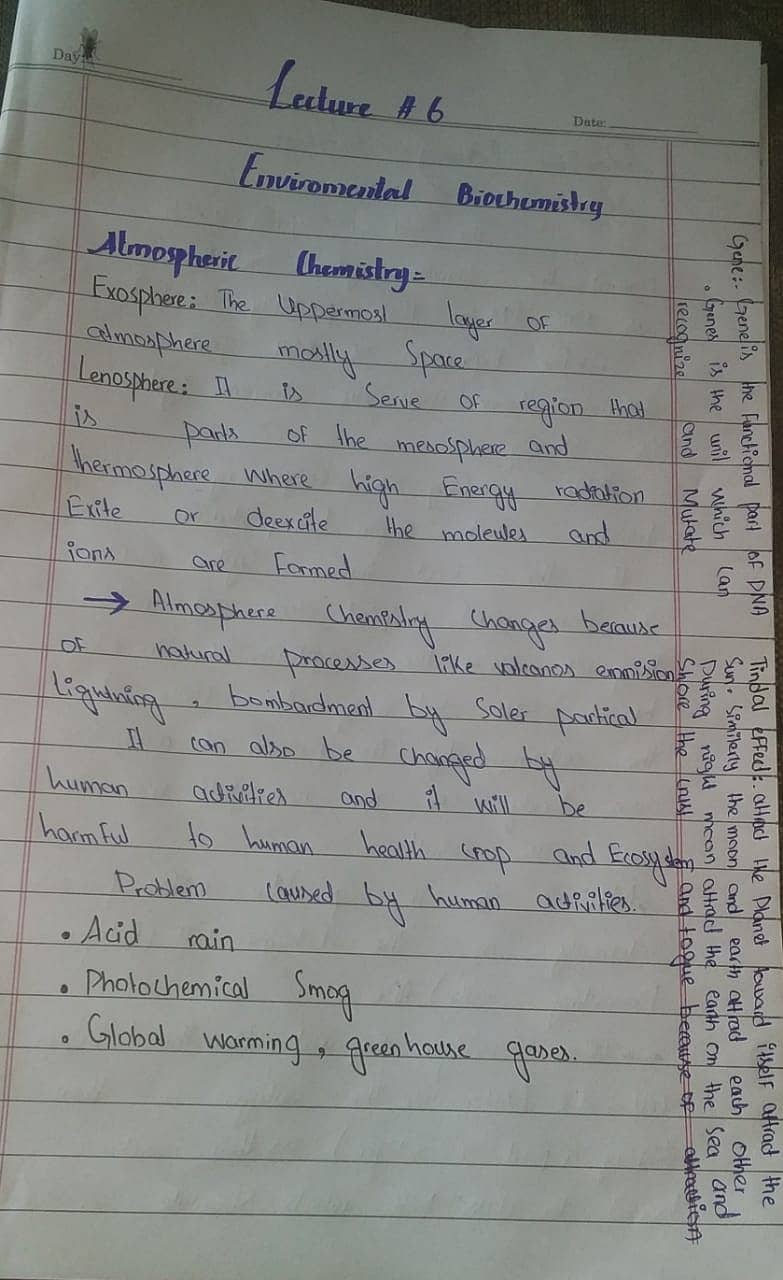 Day:
Lecture # 6
Date:
Enviromental Biochemistry
Atmospheric Chemistry=
Exosphere: The Uppermost layer of
atmosphere mostly Space
Lenosphere: It is Serve of region that
is parts of the mesosphere and
thermosphere where high Energy radiation
Exite or deexcite the moleules and
ions are Formed
→ Atmosphere Chemistry Changes because
of natural processes like volcanos emnision
Lightning, bombardment by Soler partical
It can also be changed by
human activities and it will be
harmful to human health crop and Ecosystem
Problem caused by human activities.
• Acid rain
• Photochemical Smog
• Global warming, greenhouse gases.
Gene:- Gene is the functional part of DNA
• Genes is the unit which can
recognize and Mutate
Tindal effect:. attract the Planet toward itself attract the
Sun. Similarly the moon and earth attract each other
During night moon attract the earth on the Sea and
Shore the crust and because of attraction